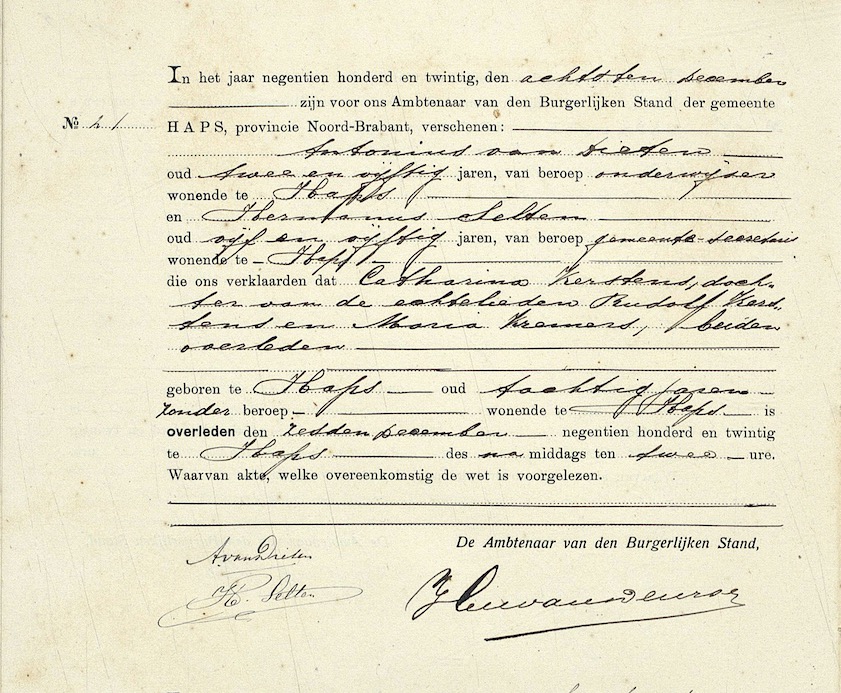 In het jaar negentien honderd en twintig, den achtsten December
zijn voor ons Ambtenaar van den Burgerlijken Stand der gemeente
No 21 HAPS, provincie Noord-Brabant, verschenen:
Antonius van Dieten
oud twee en vijftig jaren, van beroep onderwijzer
wonende te Haps
en Hermanus Selten
oud vijf en vijftig jaren, van beroep gemeente-secretaris
wonende te Haps
die ons verklaarden dat Catharina Kerstens, doch-
ter van de echtelieden Rudolf Kers-
tens en Maria Kremers, beiden
overleden
geboren te Haps oud tachtig jaren
zonder beroep wonende te Haps is
overleden den zesden December negentien honderd en twintig
te Haps des na middags ten twee ure.
Waarvan akte, welke overeenkomstig de wet is voorgelezen.
De Ambtenaar van den Burgerlijken Stand,
A van Dieten
H. Selten